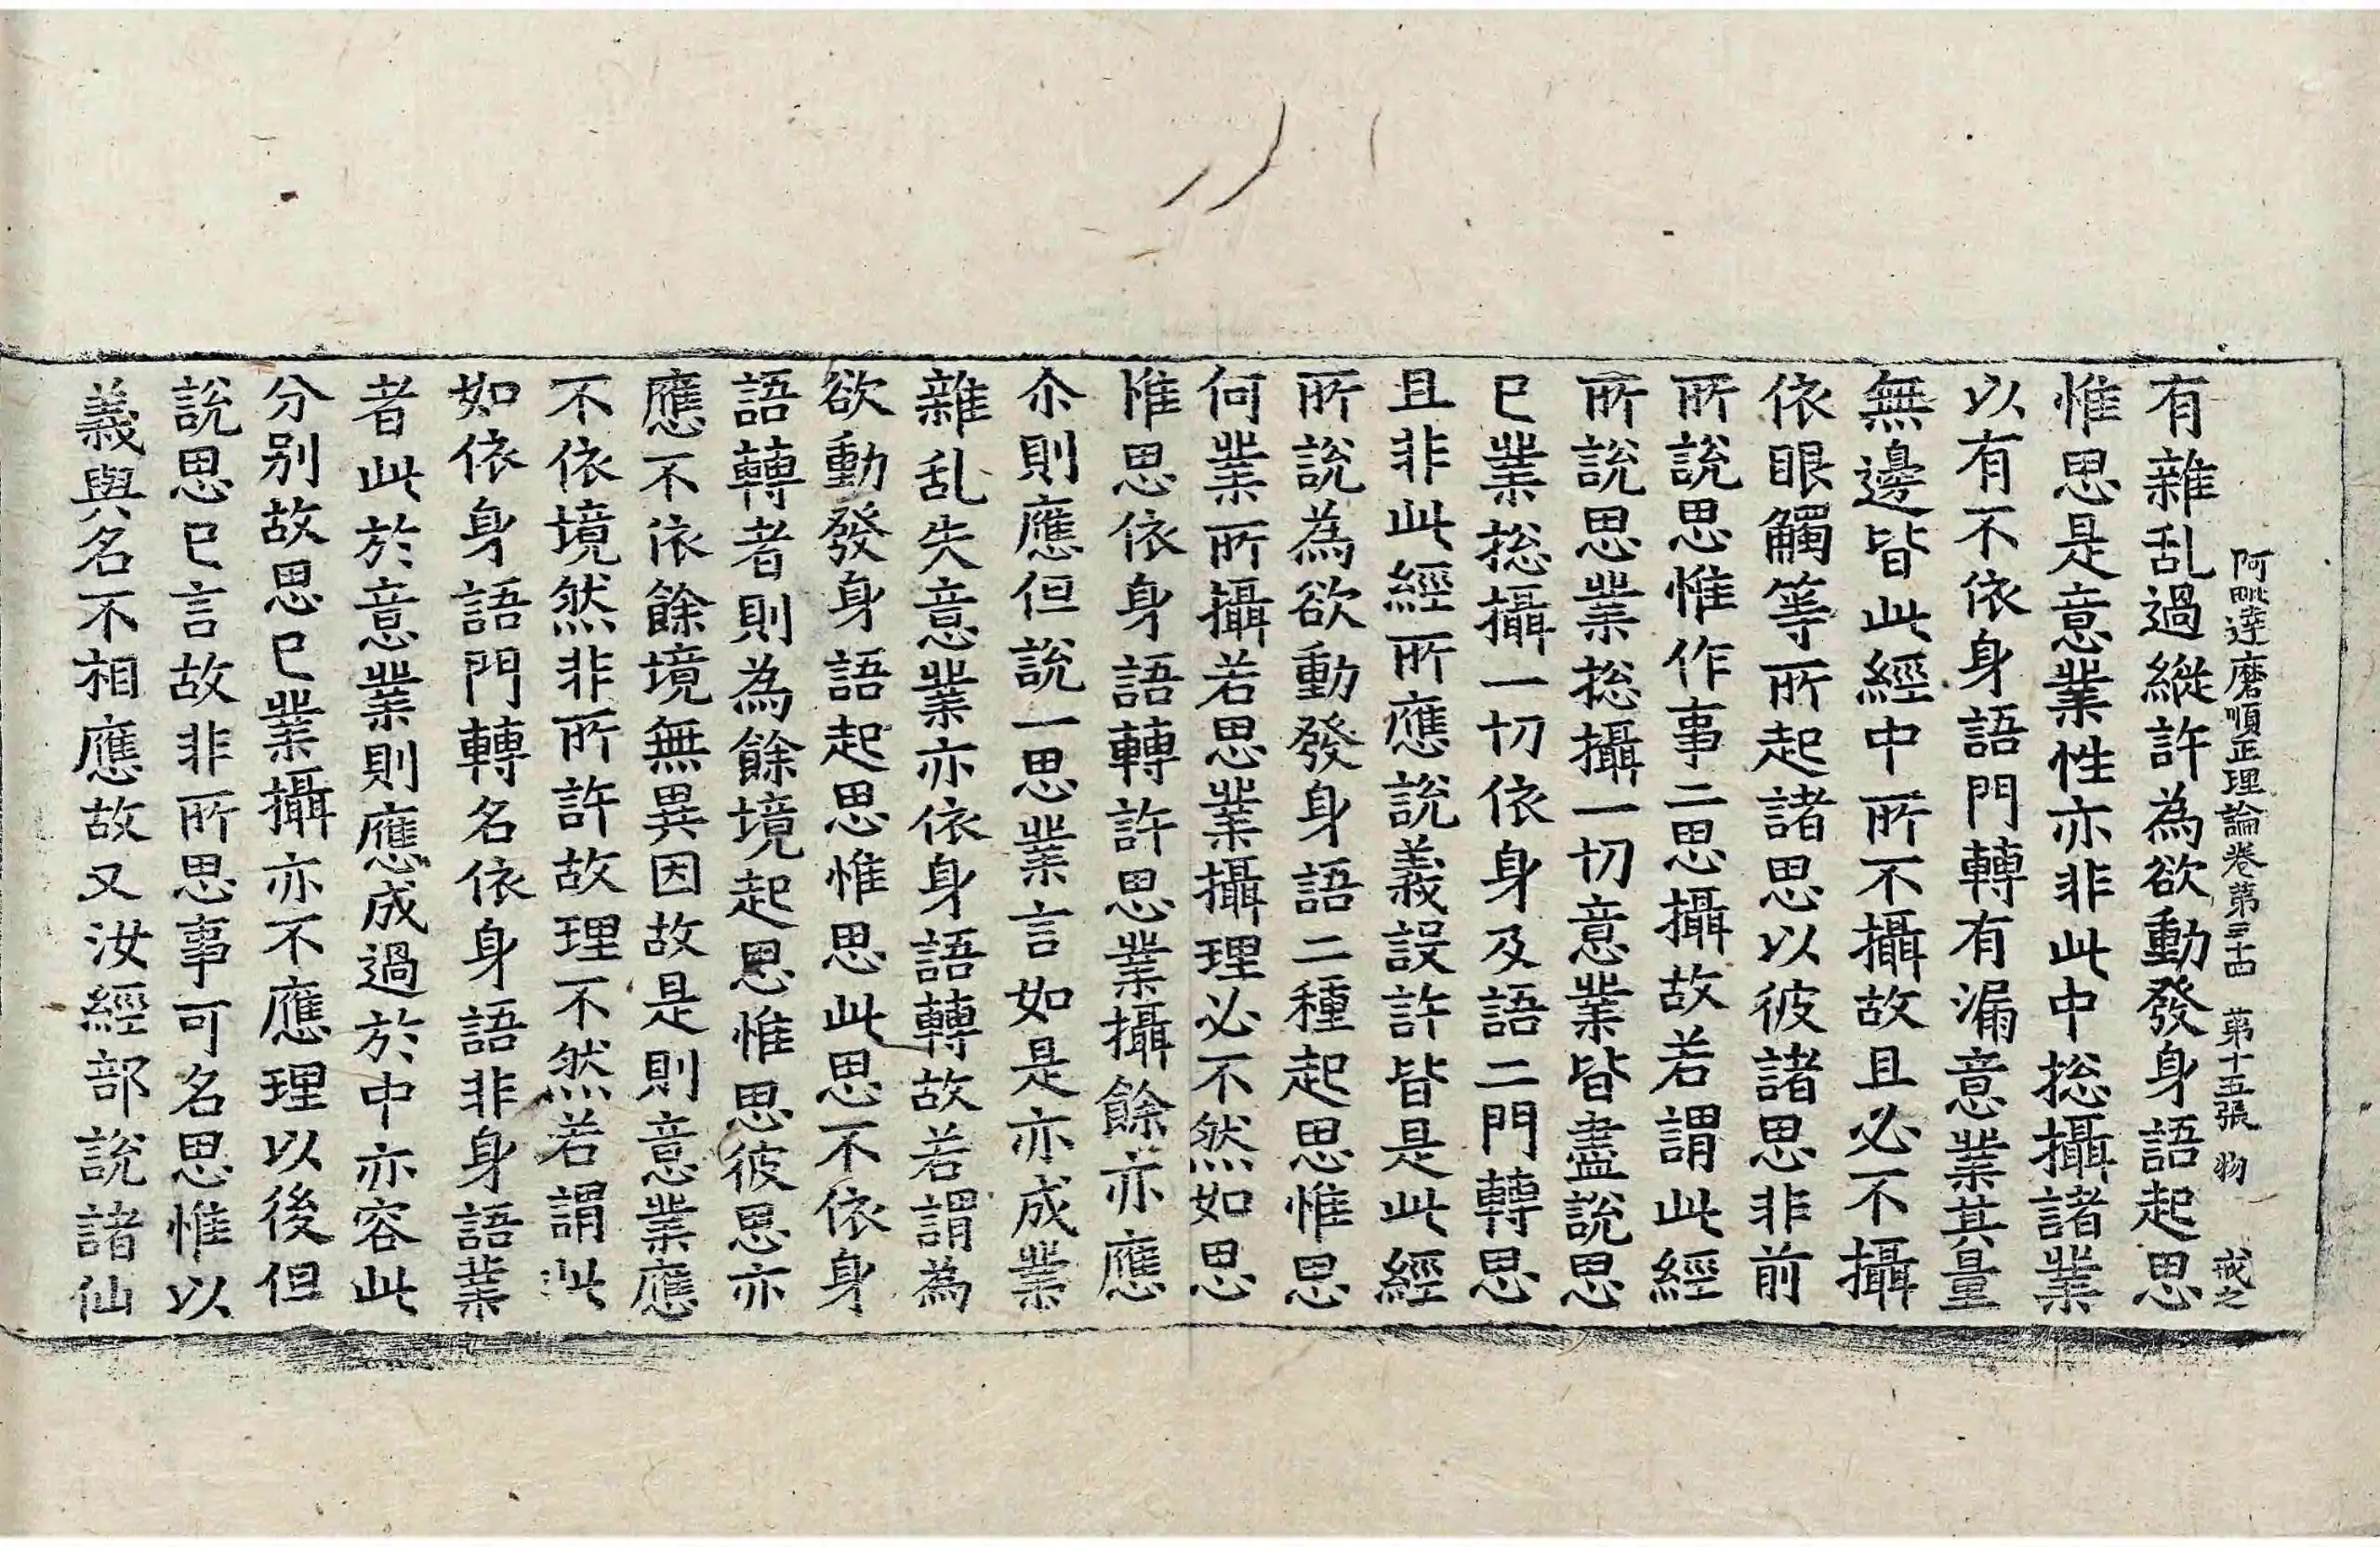 阿毗達磨順正理論卷第三十四 第十五張 物 戒之
有雜乱過縱許為欲動發身語起思
惟思是意業性亦非此中捴攝諸業
以有不依身語門轉有漏意業其量
無邊皆此經中所不攝故且必不攝
依眼觸等所起諸思以彼諸思非前
所說思惟作事二思攝故若謂此經
所說思業捴攝一切意業皆盡說思
已業捴攝一切依身及語二門轉思
且非此經所應說義設許皆是此經
所說為欲動發身語二種起思惟思
何業所攝若思業攝理必不然如思
惟思依身語轉許思業攝餘亦應
尒則應但說一思業言如是亦成業
雜乱失意業亦依身語轉故若謂為
欲動發身語起思惟思此思不依身
語轉者則為餘境起思惟思彼思亦
應不依餘境無異因故是則意業應
不依境然非所許故理不然若謂此
如依身語門轉名依身語非身語業
者此於意業則應成過於中亦容此
分別故思已業攝亦不應理以後但
說思已言故非所思事可名思惟以
義與名不相應故又汝經部說諸仙